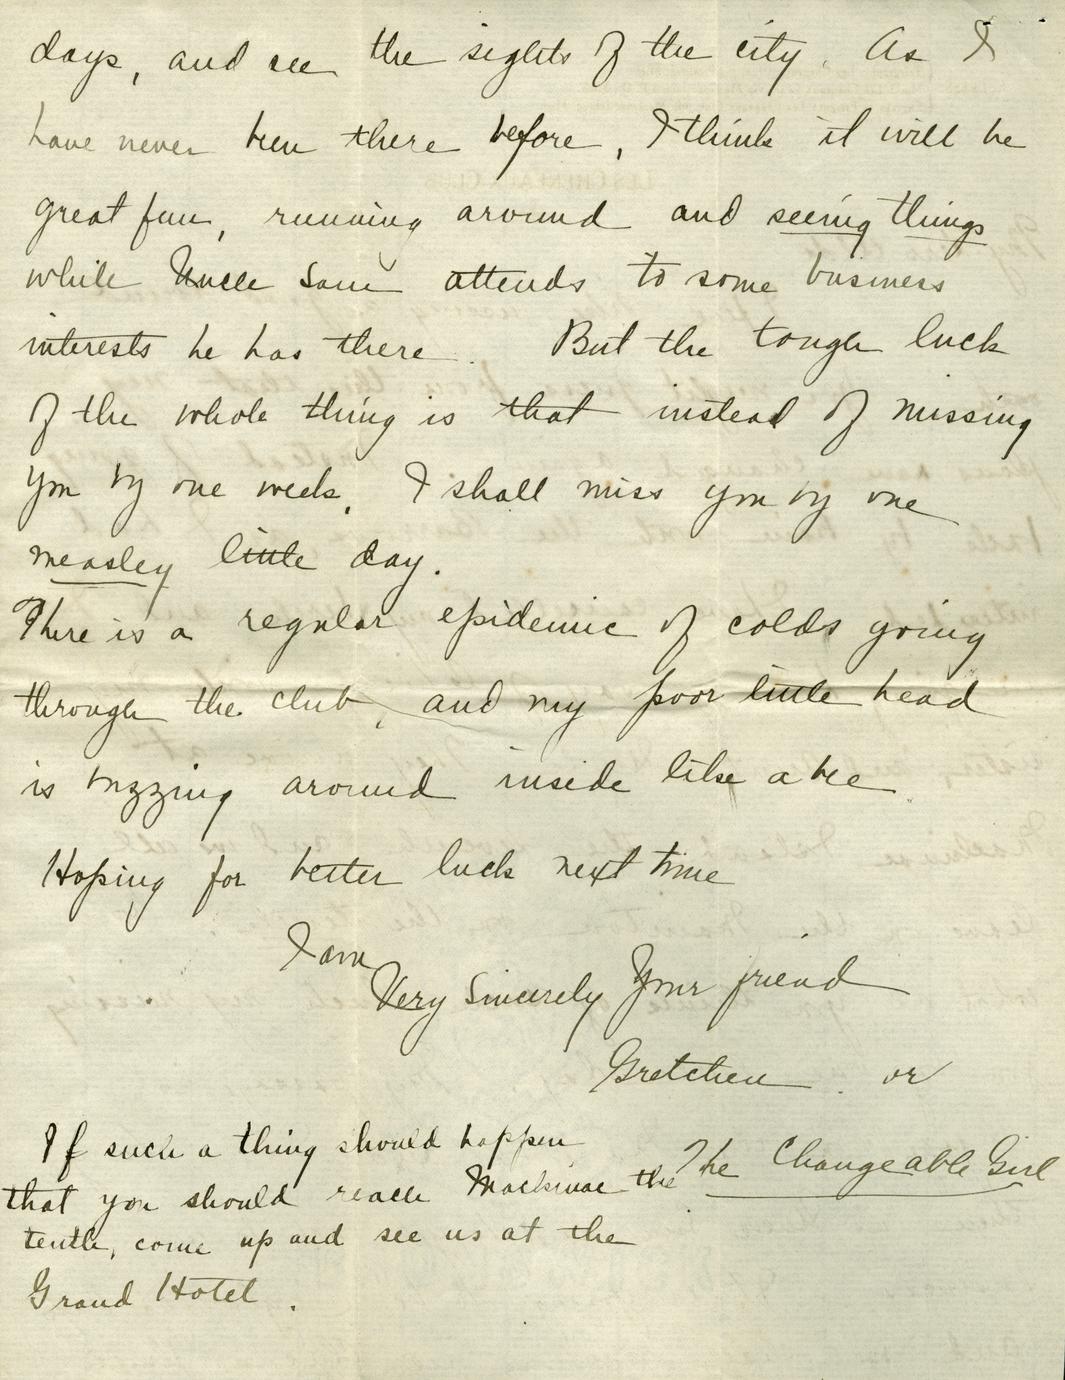 days, and see the sights of the city. As I
have never been there before, I think it will be
great fun, running around and seeing things
while Uncle Sam attends to some business
interests he has there. But the tough luck
of the whole thing is that instead of missing
you by one week, I shall miss you by one
measley little day.
There is a regular epidemic of colds going
through the club, and my poor little head
is buzzing around inside like a bee.
Hoping for better luck next time
I am
Very Sincerely Your friend
Gretchen or
The Changeable Girl
If such a thing should happen
that you should reach Mackinac the
tenth, come up and see us at the
Grand Hotel.